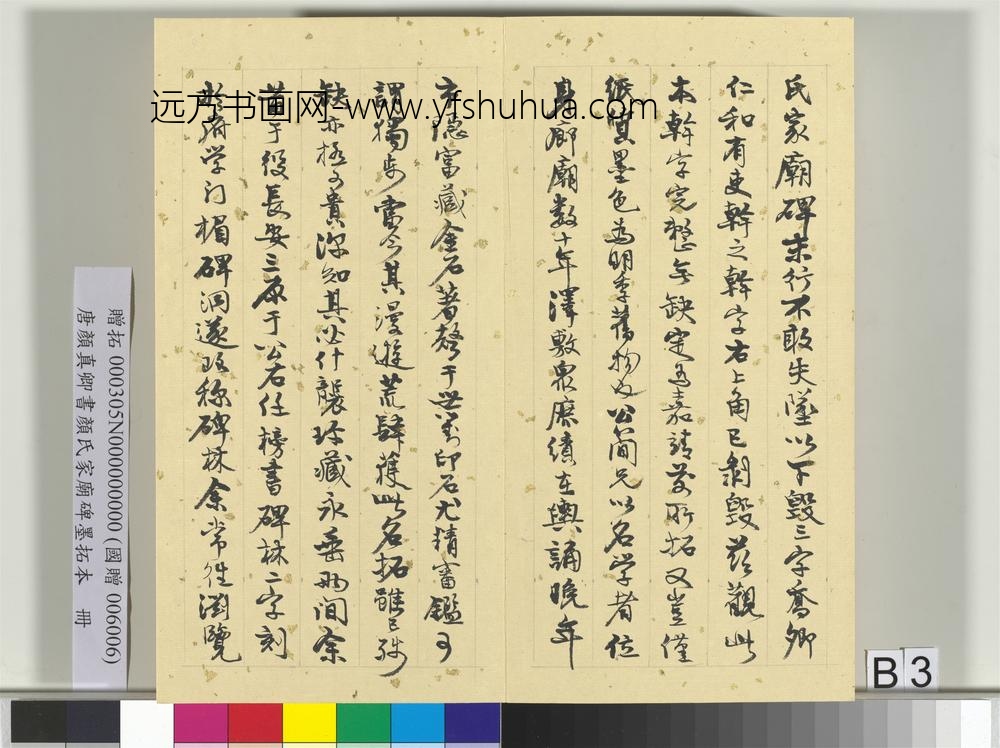 氏家廟碑末行不敢失墜以下毀三字喬卿
仁和有吏幹之幹字右上角已剝毀茲觀此
本幹字完整無缺定為嘉靖前所拓又豈僅
紙質墨色為明季舊物如公簡兄以名学者位
廊廟數十年澤敷眾庶績在輿誦晚年
市隱富藏金石著聲于世對印石尤精審鑑可
謂獨步當今其漫遊荒肆獲此名拓雖已殘
缺亦極可貴深知其必什襲珍藏永垂兩間余
于役長安三原于公右任榜書碑林二字刻
於府学门楣碑洞遂改稱碑林余常往瀏覽
远方书画网-www.yfshuhua.com
贈拓 000305N000000000 (國贈 006006)
唐顏真卿書顏氏家廟碑墨拓本 冊
B 3